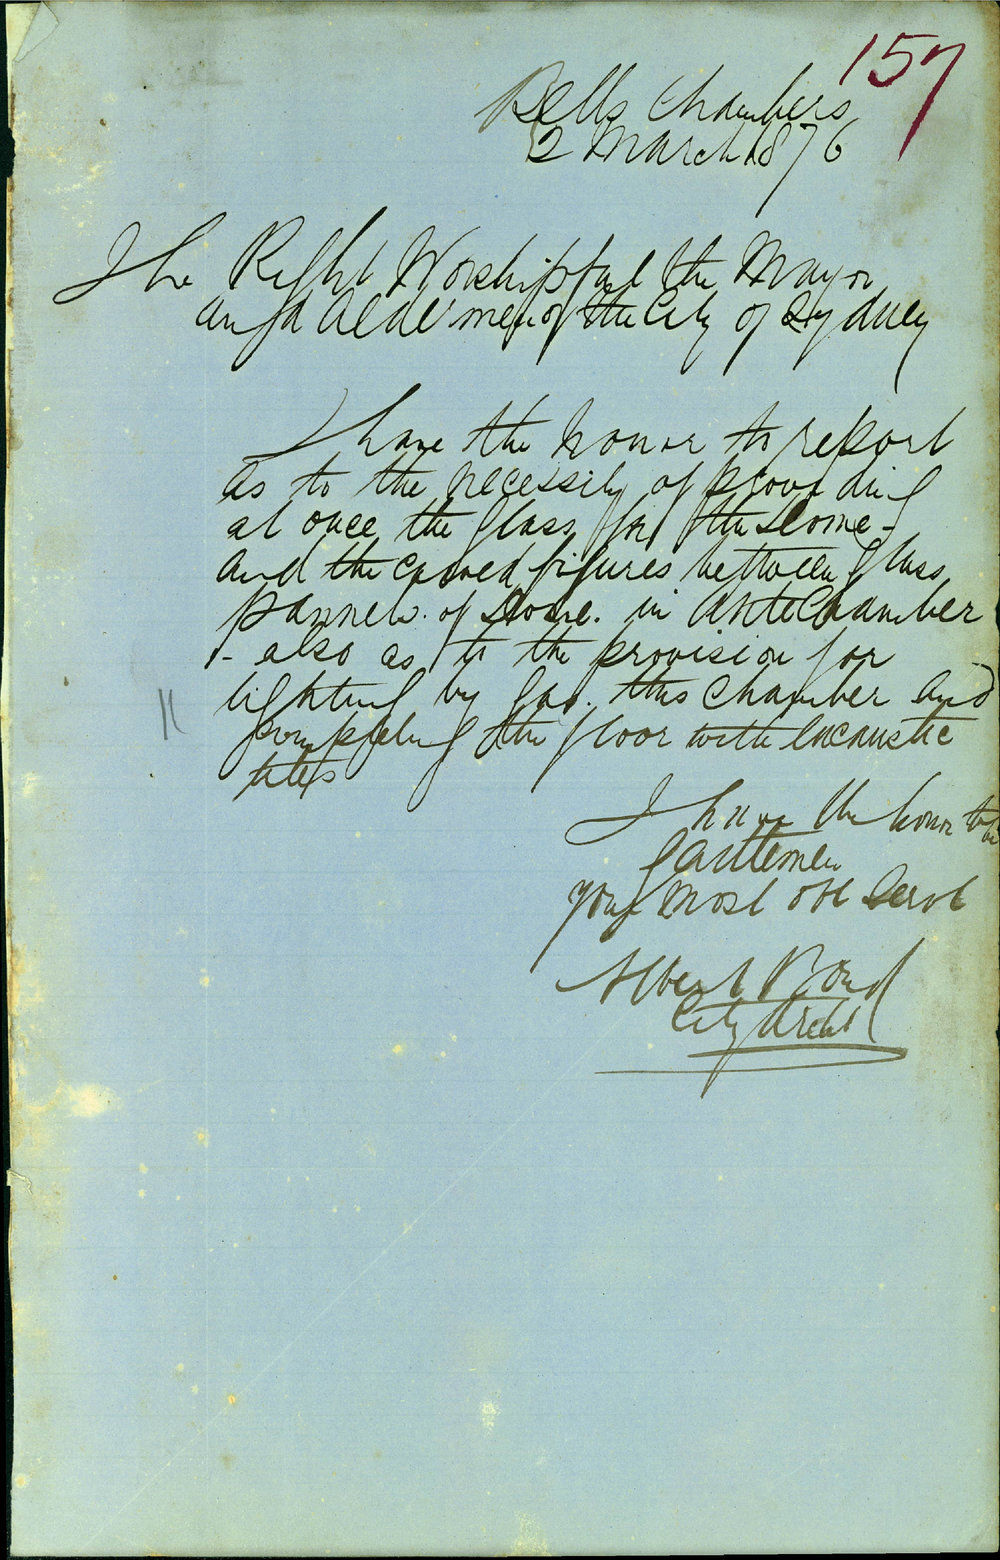 157
Bells Chambers
2 March 1876
The Right Worshipful the Mayor
and Aldermen of the City of Sydney
I have the honor to report
as to the necessity of providing
at once the glass for the Dome -
and the carved figures between glass
pannels of Dome. in antechamber
- also as to the provision for
lighting by gas. this chamber and
completing the floor with encaustic
tiles
I have the honor to be
Gentlemen
your most obt Servt
Albert Bond
City Archt